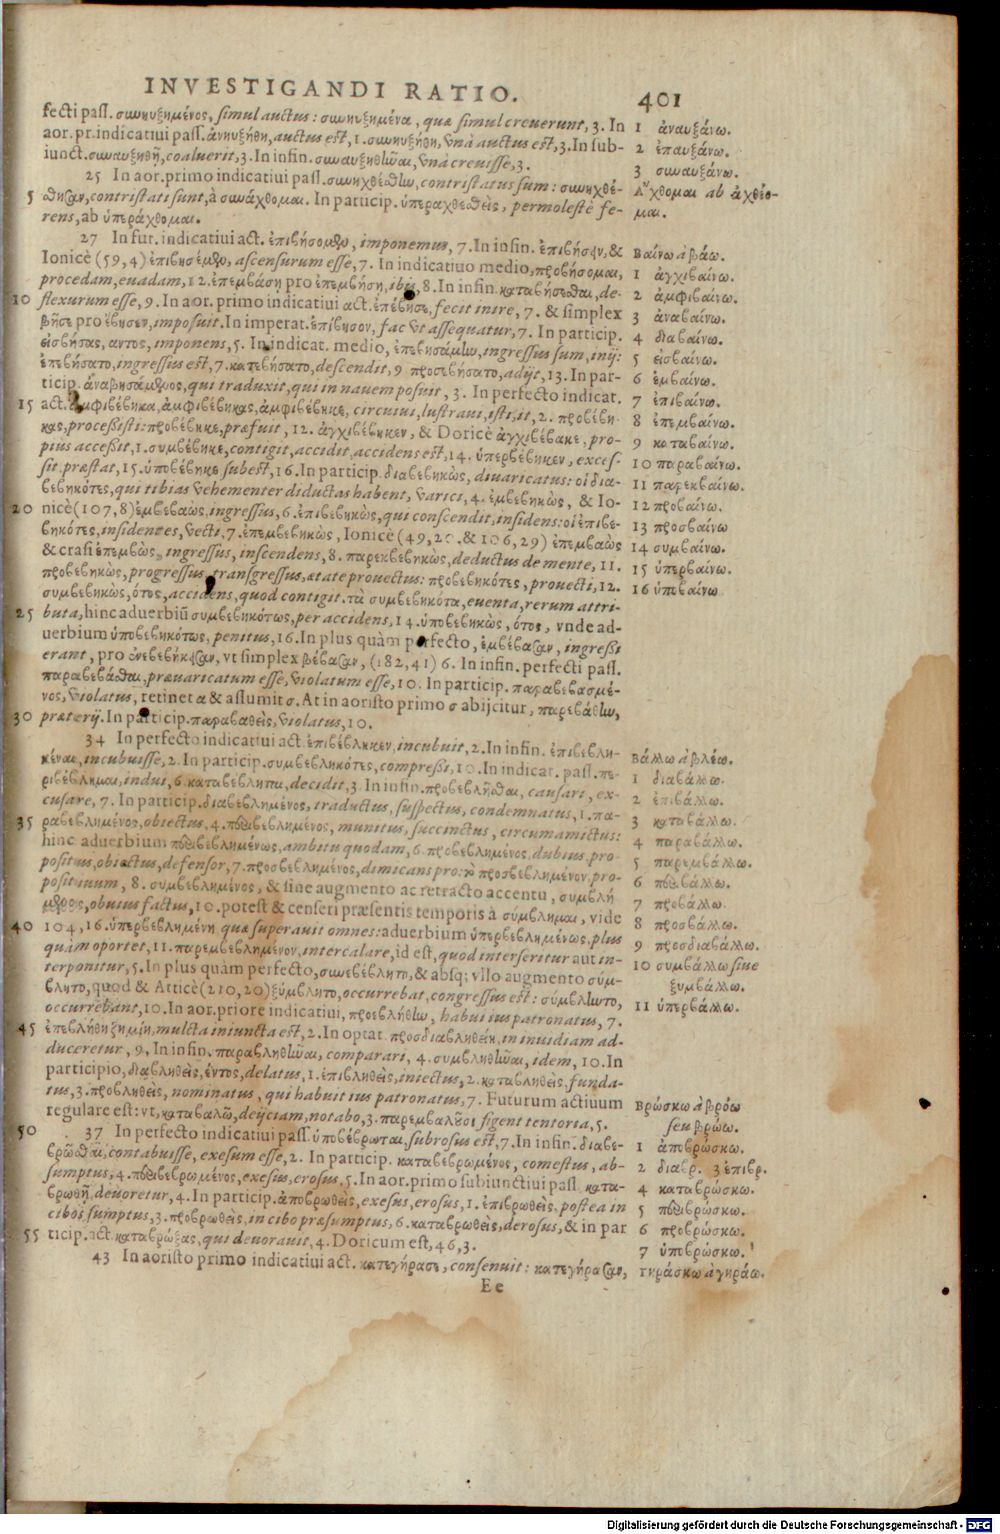 INVESTIGANDI RATIO. 401
fecti pass. συνηυξημένος, simul auctus: συνηυξημένα, quæ simul creuerunt, 3. In
aor. pr. indicatiui pass. ἀνηυξήθη, auctus est, 1. συνηυξήθη, vnà auctus est, 3. In sub-
iunct. συναυξηθῇ, coaluerit, 3. In infin. συναυξηθῆναι, vnà creuisse, 3.
25 In aor. primo indicatiui pass. συνηχθέσθην, contristatus sum: συνηχθέ-
5 σθησαν, contristati sunt, à συνάχθομαι. In particip. ὑπεραχθεσθεὶς, permolestè fe-
rens, ab ὑπεράχθομαι.
27 In fut. indicatiui act. ἐπιβήσομεν, imponemus, 7. In infin. ἐπιβήσειν, &
Ionicè (59, 4) ἐπιβησέμεν, ascensurum esse, 7. In indicatiuo medio, προβήσομαι,
procedam, euadam, 12. ἐπεμβάση pro ἐπεμβήση, ibis, 8. In infin. καταβήσεσθαι, de-
10 flexurum esse, 9. In aor. primo indicatiui act. ἐπέβησε, fecit inire, 7. & simplex
βῆσε pro ἔβησεν, imposuit. In imperat. ἐπίβησον, fac vt assequatur, 7. In particip.
εἰσβήσας, αντος, imponens, 5. In indicat. medio, ἐπεβησάμην, ingressus sum, inij:
ἐπεβήσατο, ingressus est, 7. κατεβήσατο, descendit, 9 προσεβήσατο, adijt, 13. In par-
ticip. ἀναβησάμενος, qui traduxit, qui in nauem posuit, 3. In perfecto indicat.
15 act. ἀμφιβέβηκα, ἀμφιβέβηκας, ἀμφιβέβηκε, circuiui, lustraui, isti, it, 2. προβέβη-
κας, processisti: προβέβηκε, præfuit, 12. ἀγχιβέβηκεν, & Doricè ἀγχιβέβακε, pro-
pius accessit, 1. συμβέβηκε, contigit, accidit, accidens est, 14. ὑπερβέβηκεν, exces-
sit, præstat, 15. ὑποβέβηκε subest, 16. In particip. διαβεβηκὼς, diuaricatus: οἱ δια-
βεβηκότες, qui tibias vehementer diductas habent, varici, 4. ἐμβεβηκὼς, & Io-
20 nicè (107, 8) ἐμβεβαὼς, ingressus, 6. ἐπιβεβηκὼς, qui conscendit, insidens: οἱ ἐπιβε-
βηκότες, insidentes, vecti, 7. ἐπεμβεβηκὼς, Ionicè (49, 20. & 106, 29) ἐπεμβαὼς
& crasi ἐπεμβὼς, ingressus, inscendens, 8. παρεκβεβηκὼς, deductus de mente, 11.
προβεβηκὼς, progressus, transgressus, ætate prouectus: προβεβηκότες, prouecti, 12.
συμβεβηκὼς, ότος, accidens, quod contigit. τὰ συμβεβηκότα, euenta, rerum attri-
25 buta, hinc aduerbiū συμβεβηκότως, per accidens, 14. ὑποβεβηκὼς, ότος, vnde ad-
uerbium ὑποβεβηκότως, penitus, 16. In plus quàm perfecto, ἐμβέβασαν, ingressi
erant, pro ἐνεβεβήκεισαν, vt simplex βέβασαν, (182, 41) 6. In infin. perfecti pass.
παραβεβάσθαι, præuaricatum esse, violatum esse, 10. In particip. παραβεβασμέ-
νος, violatus, retinet α & assumit σ. At in aoristo primo σ abijcitur, παρεβάθην,
30 præterij. In particip. παραβαθεὶς, violatus, 10.
34 In perfecto indicatiui act. ἐπιβέβληκεν, incubuit, 2. In infin. ἐπιβεβλη-
κέναι, incubuisse, 2. In particip. συμβεβληκότες, compressi, 10. In indicat. pass. πε-
ριβέβλημαι, indui, 6. καταβέβληται, decidit, 3. In infin. προβεβλῆσθαι, causari, ex-
cusare, 7. In particip. διαβεβλημένος, traductus, suspectus, condemnatus, 1. πα-
35 ραβεβλημένος, obiectus, 4. περιβεβλημένος, munitus, succinctus, circumamictus:
hinc aduerbium περιβεβλημένως, ambitu quodam, 6. προβεβλημένος, dubius, pro-
positus, obiectus, defensor, 7. προσβεβλημένος, dimicans pro: προσβεβλημένον, pro-
posituum, 8. συμβεβλημένος, & sine augmento ac retracto accentu, συμβλή
μενος, obuius factus, 10. potest & censeri præsentis temporis à σύμβλημαι, vide
40 104, 16. ὑπερβεβλημένη quæ superauit omnes: aduerbium ὑπερβεβλημένως, plus
quàm oportet, 11. παρεμβεβλημένον, intercalare, id est, quod interseritur aut in-
terponitur, 5. In plus quàm perfecto, συνεβέβλητο, & absq; vllo augmento σύμ-
βλητο, quod & Atticè (210, 20) ξύμβλητο, occurrebat, congressus est: σύμβληντο,
occurrebant, 10. In aor. priore indicatiui, προεβλήθην, habui ius patronatus, 7.
45 ἐπεβλήθη ζημίη, mulcta iniuncta est, 2. In optat. προσδιαβληθείη, in inuidiam ad-
duceretur, 9, In infin. παραβληθῆναι, comparari, 4. συμβληθῆναι, idem, 10. In
participio, διαβληθεὶς, έντος, delatus, 1. ἐπιβληθεὶς, iniectus, 2. καταβληθεὶς, funda-
tus, 3. προβληθεὶς, nominatus, qui habuit ius patronatus, 7. Futurum actiuum
regulare est: vt, καταβαλῶ, deijciam, notabo, 3. παρεμβαλοῦσι figent tentoria, 5.
50 37 In perfecto indicatiui pass. ὑποβέβρωται, subrosus est, 7. In infin. διαβε-
βρῶσθαι, contabuisse, exesum esse, 2. In particip. καταβεβρωμένος, comestus, ab-
sumptus, 4. περιβεβρωμένος, exesus, erosus, 5. In aor. primo subiunctiui pass. κατα-
βρωθῇ, deuoretur, 4. In particip. ἀποβρωθεὶς, exesus, erosus, 1. ἐπιβρωθεὶς, postea in
cibos sumptus, 3. προβρωθεὶς, in cibo præsumptus, 6. καταβρωθεὶς, derosus, & in par
55 ticip. act. καταβρώξας, qui deuorauit, 4. Doricum est, 46, 3.
43 In aoristo primo indicatiui act. κατεγήρασε, consenuit: κατεγήρασαν,
Ee
1 ἀναυξάνω.
2 ἐπαυξάνω.
3 συναυξάνω.
Ἄχθομαι ab ἀχθέο-
μαι.
Βαίνω à βάω.
1 ἀγχιβαίνω.
2 ἀμφιβαίνω.
3 ἀναβαίνω.
4 διαβαίνω.
5 εἰσβαίνω.
6 ἐμβαίνω.
7 ἐπιβαίνω.
8 ἐπεμβαίνω.
9 καταβαίνω.
10 παραβαίνω.
11 παρεκβαίνω.
12 προβαίνω.
13 προσβαίνω
14 συμβαίνω.
15 ὑπερβαίνω.
16 ὑποβαίνω
Βάλλω à βλέω.
1 διαβάλλω.
2 ἐπιβάλλω.
3 καταβάλλω.
4 παραβάλλω.
5 παρεμβάλλω.
6 περιβάλλω.
7 προβάλλω.
8 προσβάλλω.
9 προσδιαβάλλω.
10 συμβάλλω siue
ξυμβάλλω.
11 ὑπερβάλλω.
Βρώσκω à βρόω
seu βρώω.
1 ἀποβρώσκω.
2 διαβρ. 3 ἐπιβρ.
4 καταβρώσκω.
5 περιβρώσκω.
6 προβρώσκω.
7 ὑποβρώσκω.
Γηράσκω à γηράω.
Digitalisierung gefördert durch die Deutsche Forschungsgemeinschaft - DFG